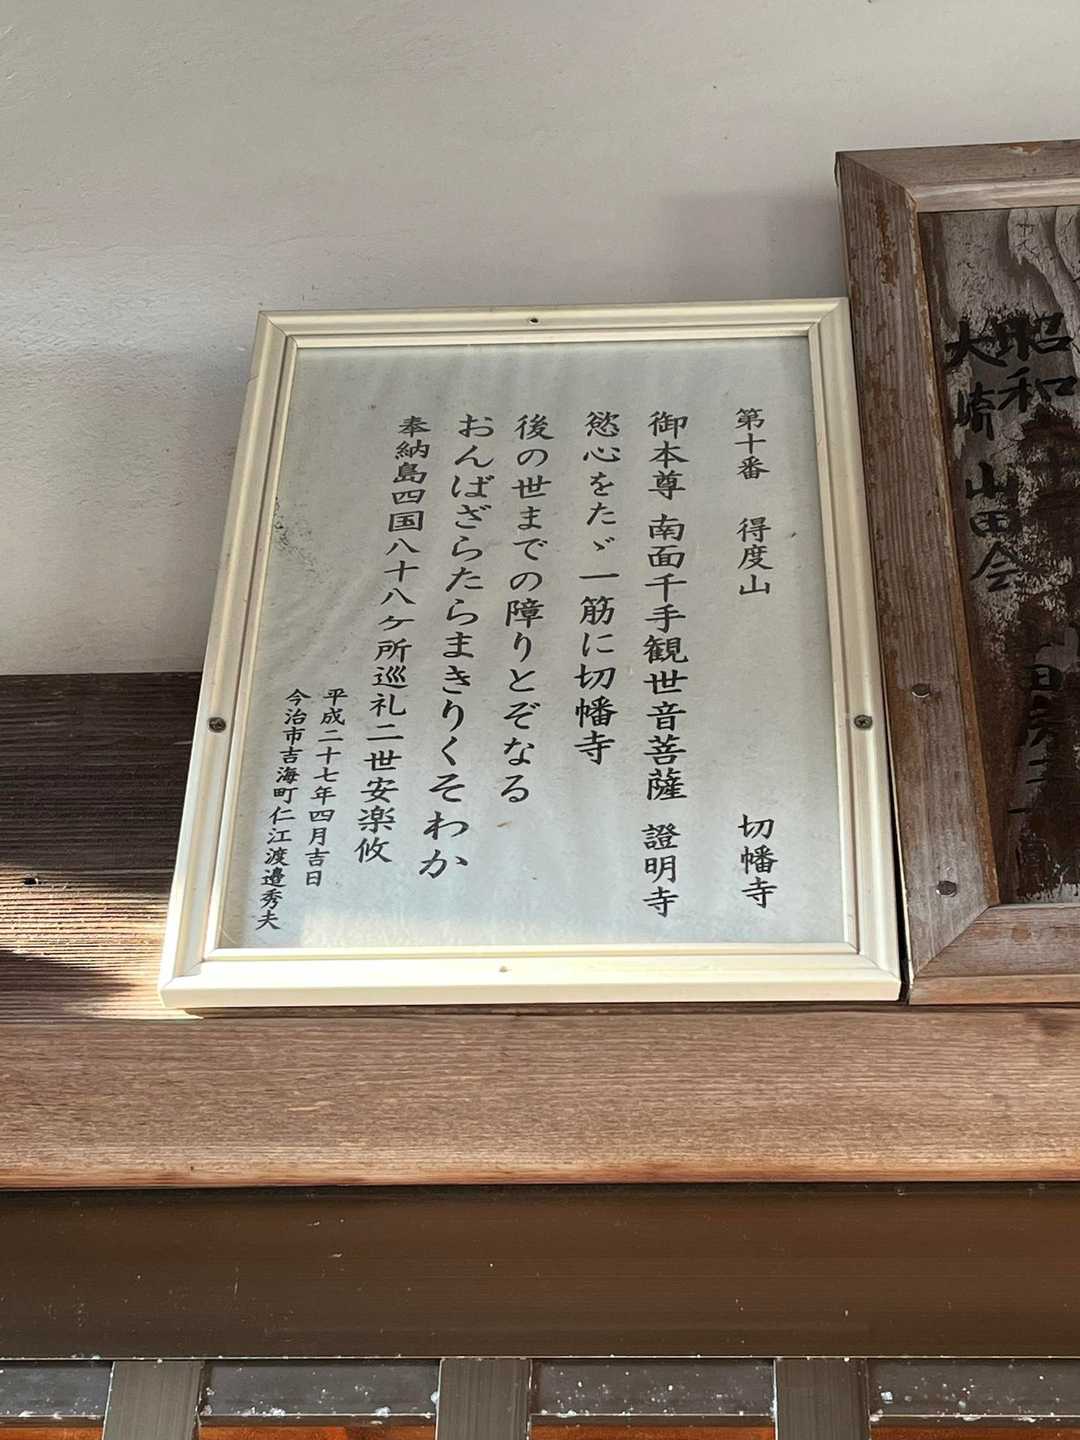 昭和
大崎 山田会
第十番 得度山 切幡寺
御本尊 南面千手観世音菩薩 證明寺
慾心をたゞ一筋に切幡寺
後の世までの障りとぞなる
おんばざらたらまきりくそわか
奉納島四国八十八ヶ所巡礼二世安楽攸
平成二十七年四月吉日
今治市吉海町仁江渡邉秀夫